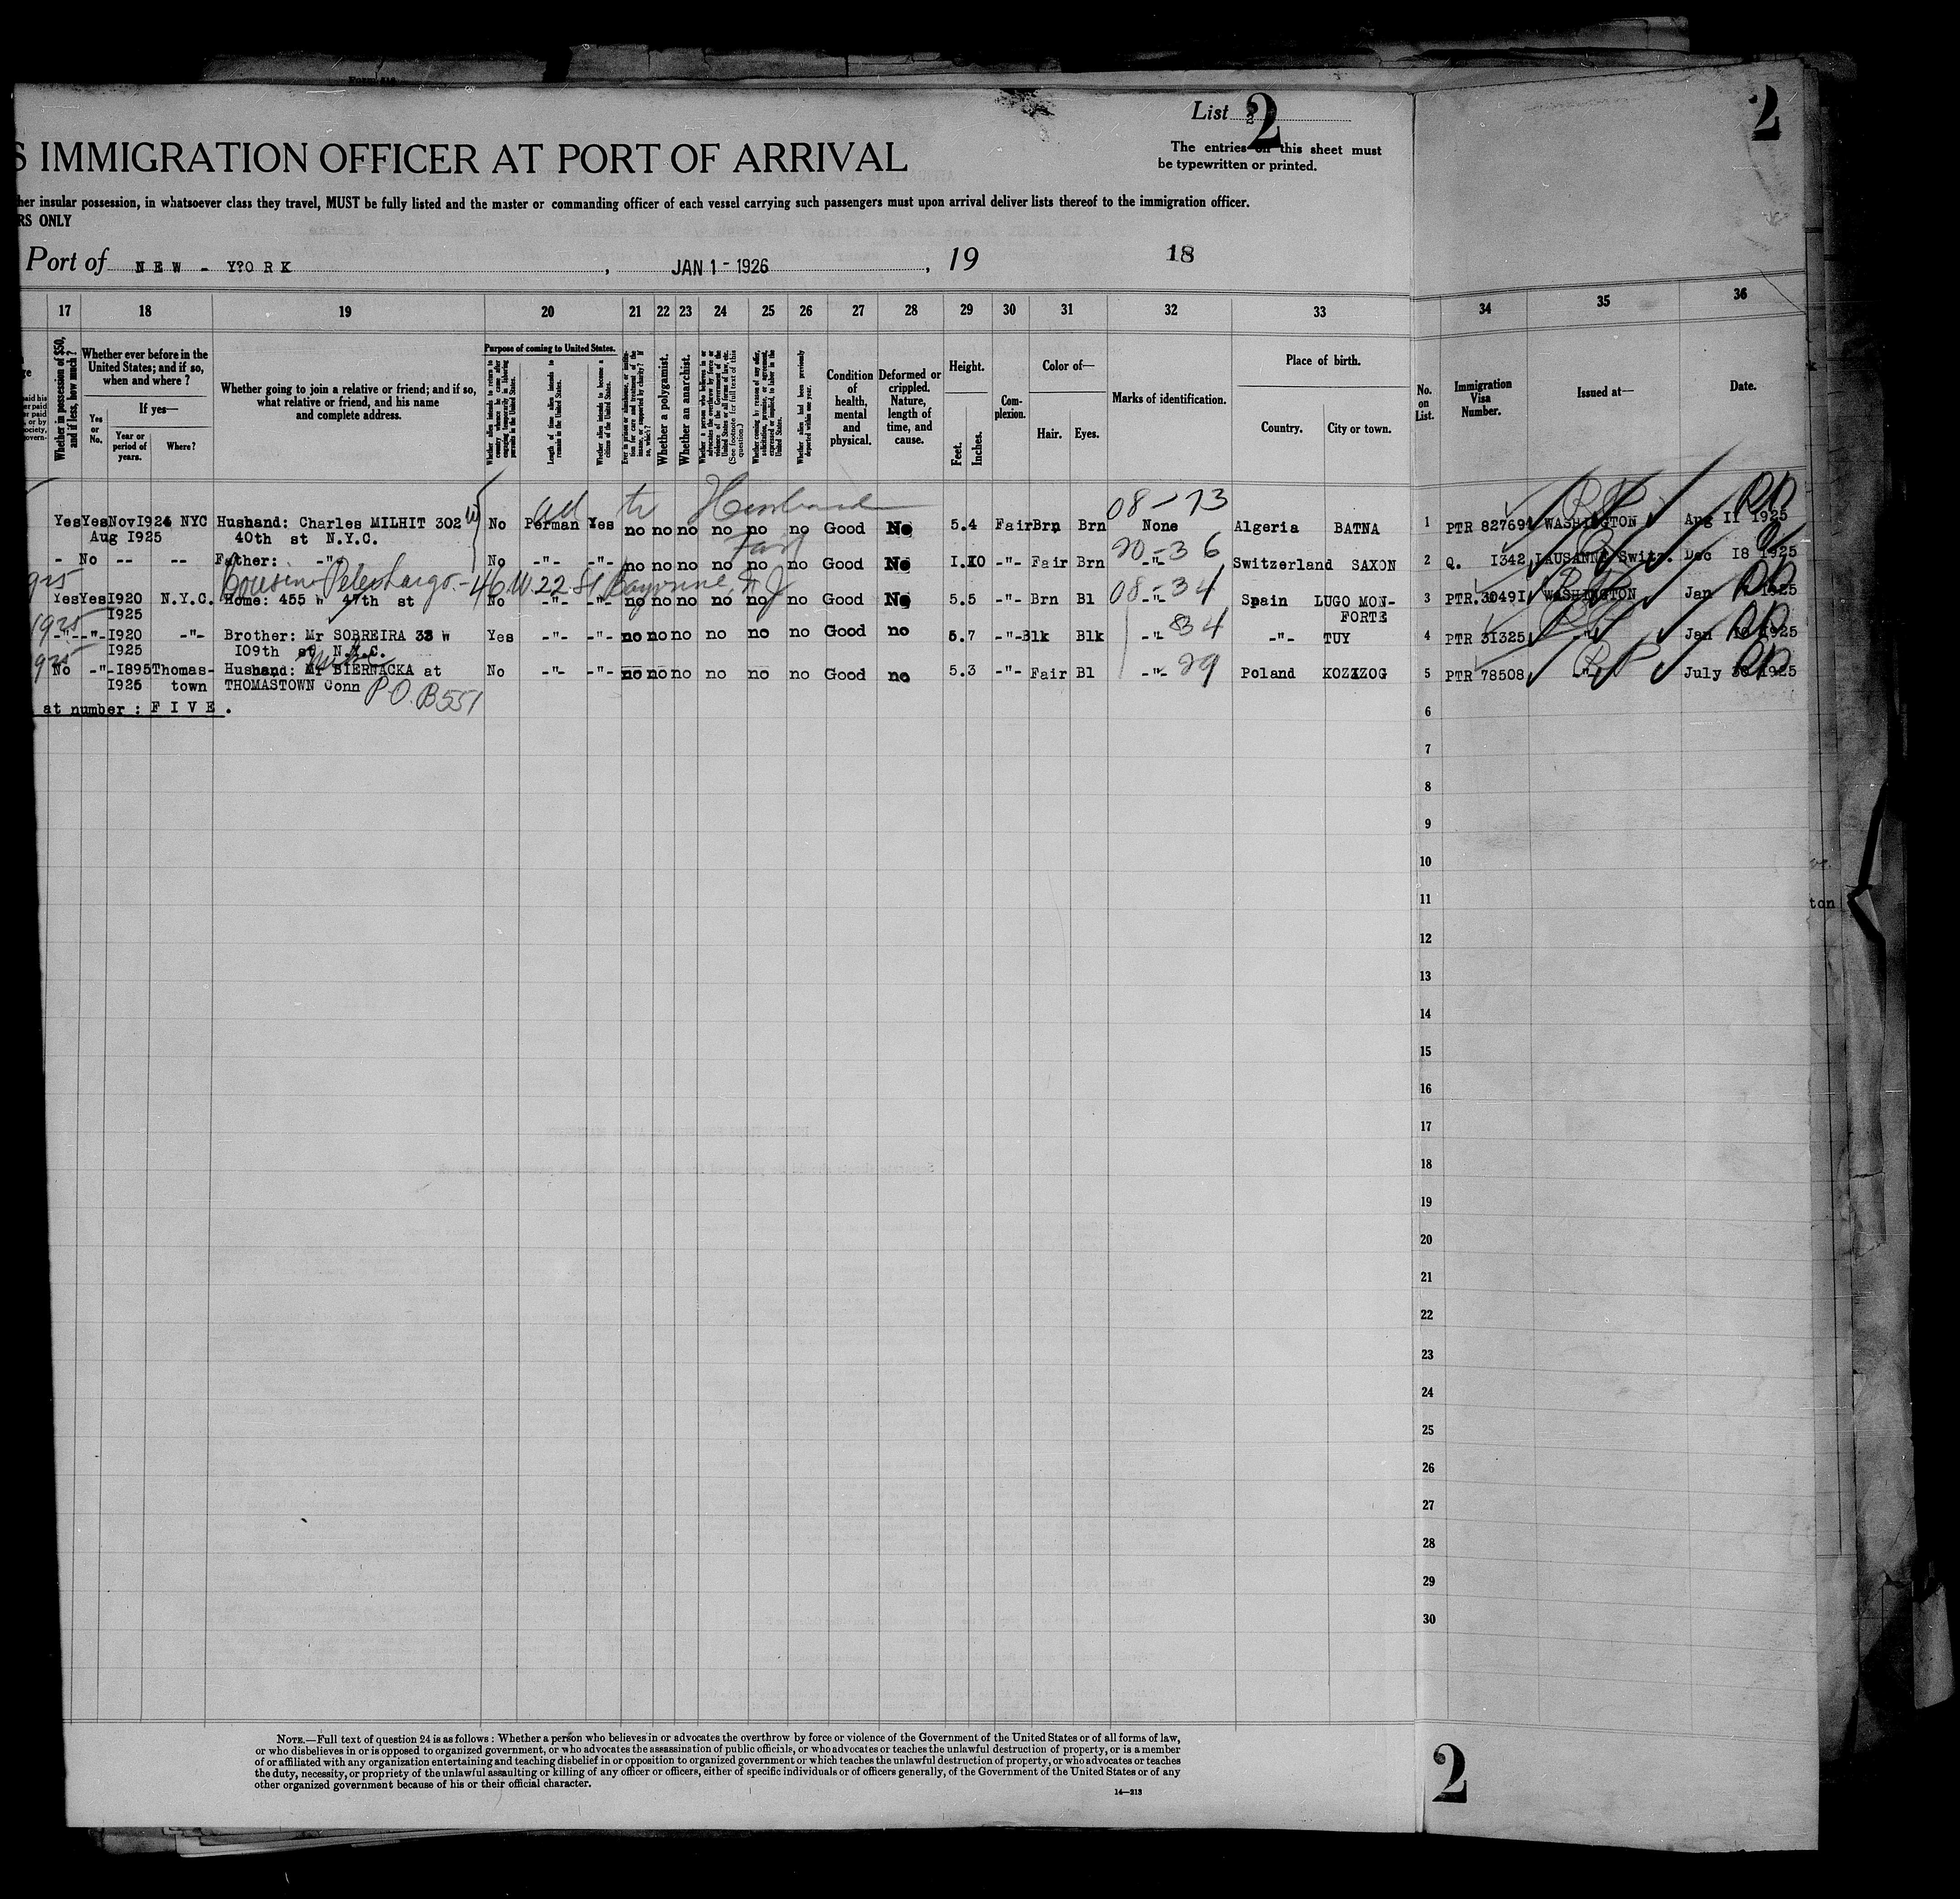 Form 516
List 2
2
2
S IMMIGRATION OFFICER AT PORT OF ARRIVAL
The entries on this sheet must
be typewritten or printed.
her insular possession, in whatsoever class they travel, MUST be fully listed and the master or commanding officer of each vessel carrying such passengers must upon arrival deliver lists thereof to the immigration officer.
RS ONLY
Port of NEW - Y?ORK , JAN 1 - 1926 , 19 18
17 18 19 20 21 22 23 24 25 26 27 28 29 30 31 32 33 34 35 36
Whether in possession of $50, and if less, how much?
Whether ever before in the United States; and if so, when and where?
Yes or No.
If yes—
Year or period of years.
Where?
Whether going to join a relative or friend; and if so, what relative or friend, and his name and complete address.
Purpose of coming to United States.
Whether alien intends to return to country whence he came after engaging temporarily in laboring pursuits in the United States.
Length of time alien intends to remain in the United States.
Whether alien intends to become a citizen of the United States.
Ever in prison or almshouse, or institution for care and treatment of the insane, or supported by charity? If so, which?
Whether a polygamist.
Whether an anarchist.
Whether a person who believes in or advocates the overthrow by force or violence of the Government of the United States or all forms of law, etc. (See footnote for full text of this question.)
Whether coming by reason of any offer, solicitation, promise, or agreement, expressed or implied, to labor in the United States.
Whether alien had been previously deported within one year.
Condition of health, mental and physical.
Deformed or crippled. Nature, length of time, and cause.
Height.
Feet.
Inches.
Complexion.
Color of—
Hair.
Eyes.
Marks of identification.
Place of birth.
Country.
City or town.
No. on List.
Immigration Visa Number.
Issued at—
Date.
ad to Husband 08-73
Yes Yes Nov I924 NYC Husband: Charles MILHIT 302 W No Perman Yes no no no no no no Good No 5.4 Fair Brn Brn None Algeria BATNA 1 PTR 82769 WASHINGTON Aug II 1925
Aug I925 40th st N.Y.C.
20-36
- No -- -- Father: -"- No -"- -"- no no no no no no Good No I.IO -"- Fair Brn -"- Switzerland SAXON 2 Q. I342 LAUSANNE Switz. Dec I8 1925
Cousin 46 W. 22 St Bayonne, N.J. 08-34
Yes Yes I920 N.Y.C. Home: 455 W 47th st No -"- -"- no no no no no no Good No 5.5 -"- Brn Bl -"- Spain LUGO MON- 3 PTR.3049I WASHINGTON Jan 1925
I925 FORTE
1925
-"- -"- I920 -"- Brother: Mr SOBREIRA 33 W Yes -"- -"- no no no no no no Good no 5.7 -"- Blk Blk -"- 34 -"- TUY 4 PTR 3I325 -"- Jan 1925
I925 I09th st N.Y.C.
No -"- I895 Thomas- Husband: Mr BIERNACKA at No -"- -"- no no no no no no Good no 5.3 -"- Fair Bl -"- 29 Poland KOZIZOG 5 PTR 78508 -"- July 30 1925
I925 town THOMASTOWN Conn P.O. B551
at number : F I V E .
6
7
8
9
10
11
12
13
14
15
16
17
18
19
20
21
22
23
24
25
26
27
28
29
30
NOTE.—Full text of question 24 is as follows: Whether a person who believes in or advocates the overthrow by force or violence of the Government of the United States or of all forms of law,
or who disbelieves in or is opposed to organized government, or who advocates the assassination of public officials, or who advocates or teaches the unlawful destruction of property, or is a member
of or affiliated with any organization entertaining and teaching disbelief in or opposition to organized government or which teaches the unlawful destruction of property, or who advocates or teaches
the duty, necessity, or propriety of the unlawful assaulting or killing of any officer or officers, either of specific individuals or of officers generally, of the Government of the United States or of any
other organized government because of his or their official character.
14—213
2